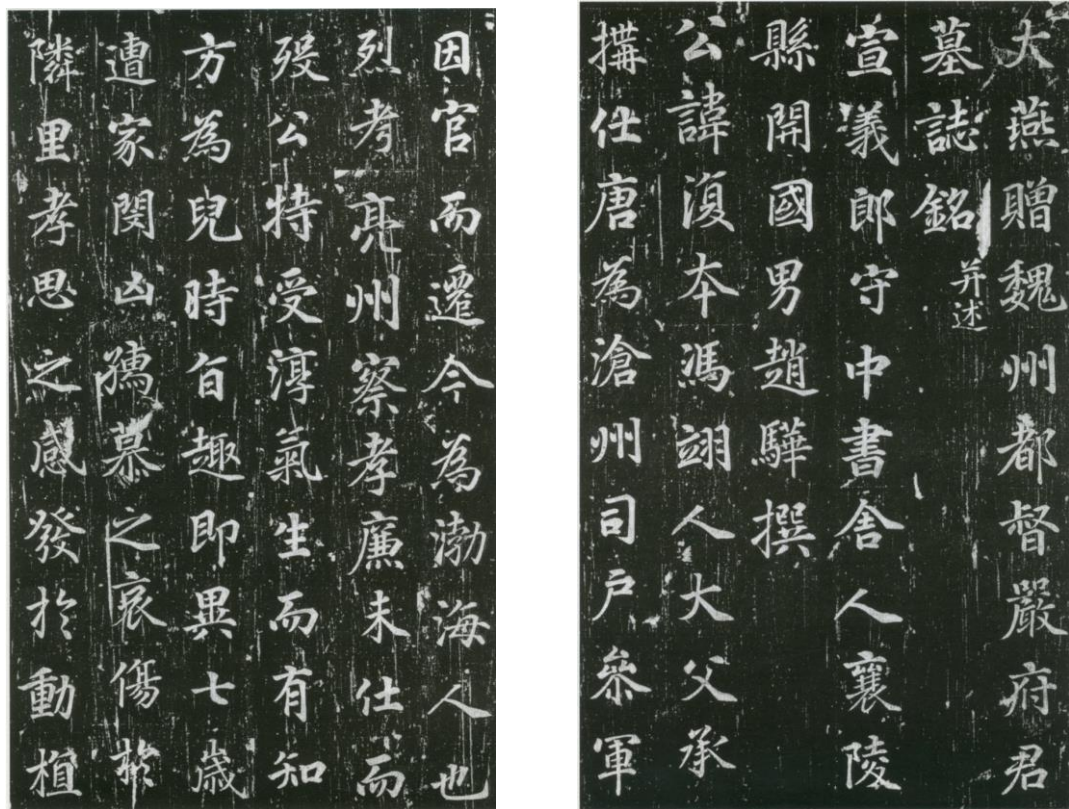 大燕贈魏州都督嚴府君
墓誌銘并述
宣義郎守中書舍人襄陵
縣開國男趙驊撰
公諱復本馮翊人大父承
搆仕唐為滄州司戶叅軍
因官而遷今為渤海人也
烈考亮州察孝廉未仕而
歿公特受淳氣生而有知
方為兒時百趣即異七歲
遭家閔凶孺慕之哀傷於
隣里孝思之感發於動植